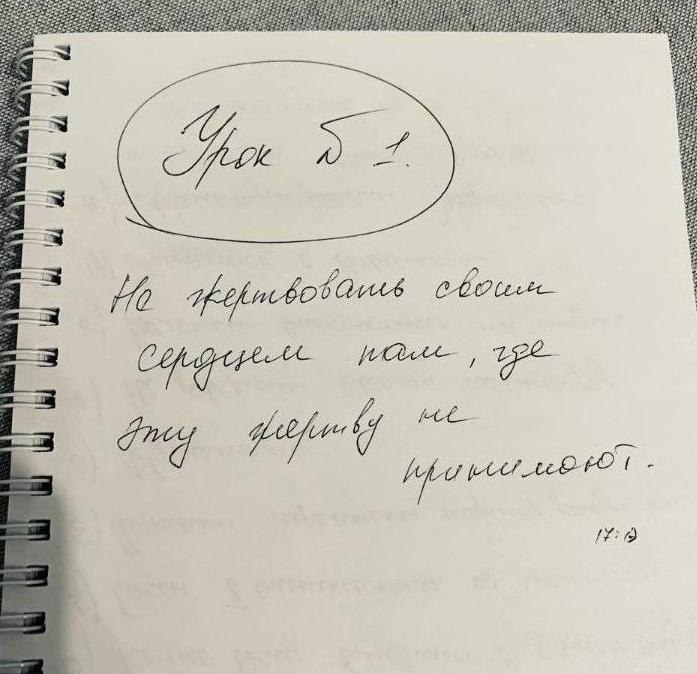 Урок №1.
Не жертвовать своим
сердцем там, где
эту жертву не
принимают.